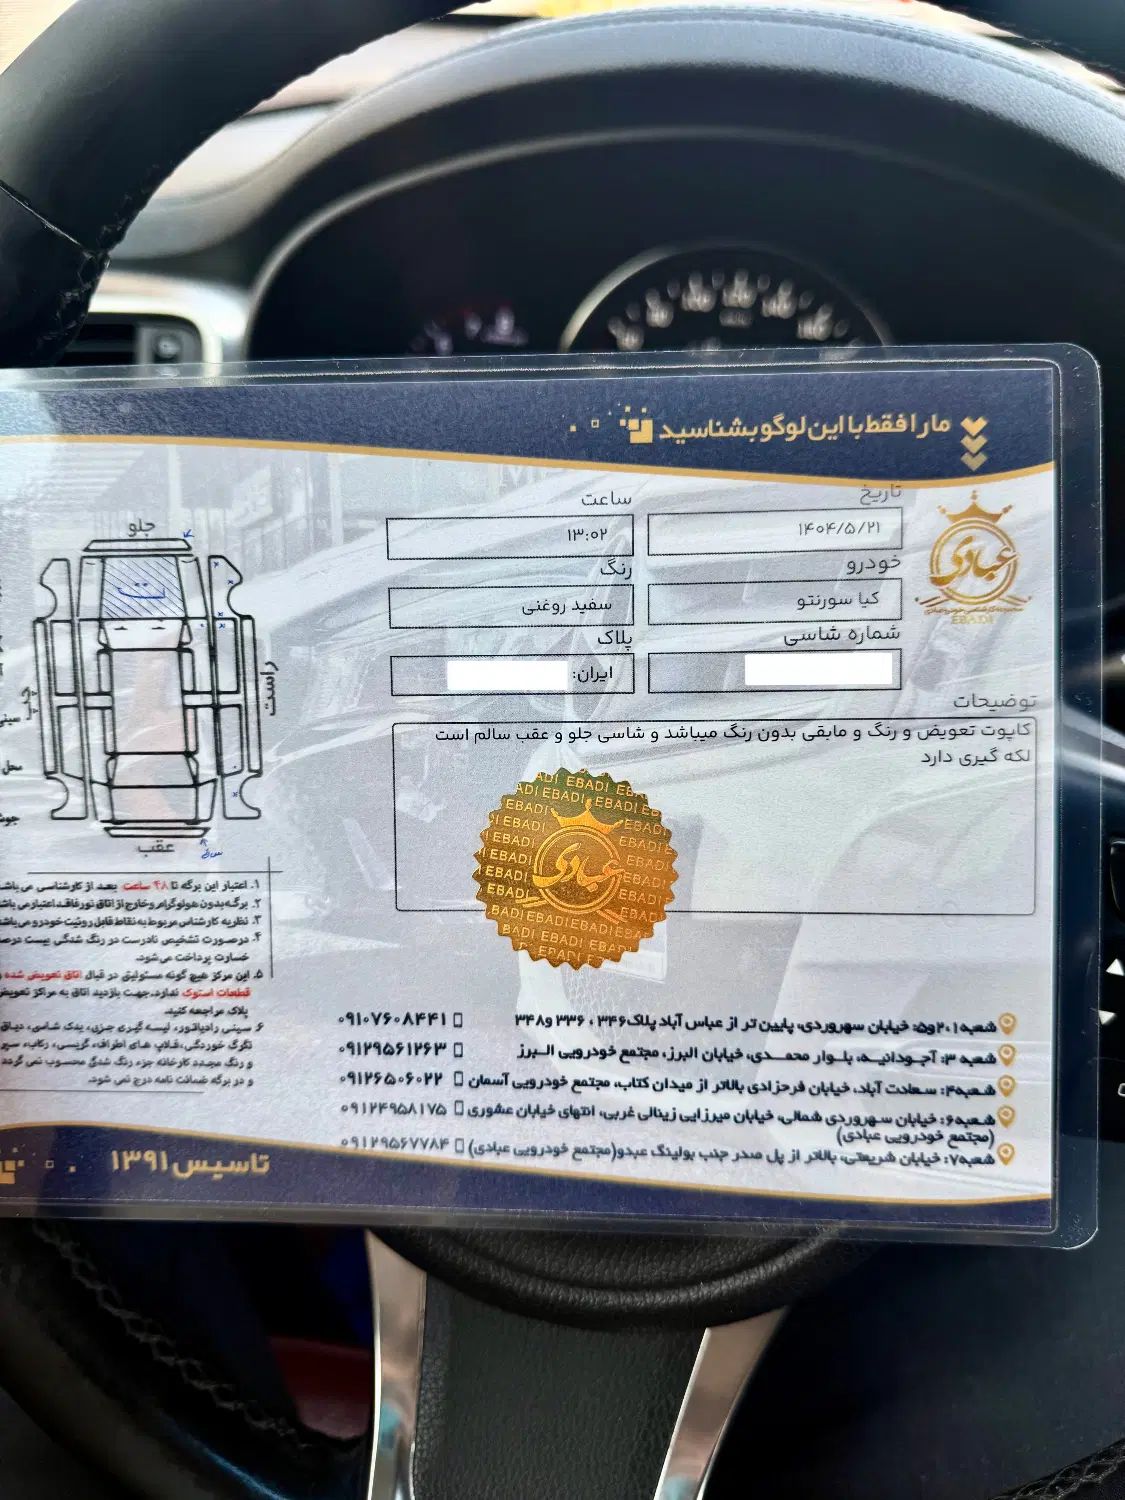 ما را فقط با این لوگو بشناسید
عبادی
EBADI
تاریخ
۱۴۰۴/۵/۲۱
ساعت
۱۳:۰۲
خودرو
کیا سورنتو
رنگ
سفید روغنی
شماره شاسی
پلاک
ایران:
توضیحات
کاپوت تعویض و رنگ و مابقی بدون رنگ میباشد و شاسی جلو و عقب سالم است
لکه گیری دارد
عبادی
EBADI
جلو
ت
راست
چپ
عقب
۱. اعتبار این برگه تا ۴۸ ساعت بعد از کارشناسی می باشد
۲. برگه بدون هولوگرام و خارج از اتاق نور فاقد اعتبار می باشد
۳. نظریه کارشناس مربوط به نقاط قابل روئیت خودرو می باشد
۴. در صورت تشخیص نادرست در رنگ شدگی بیست درصد
خسارت پرداخت می شود.
۵. این مرکز هیچ گونه مسئولیتی در قبال اتاق تعویض شده و
قطعات استوک ندارد. جهت بازدید اتاق به مراکز تعویض
پلاک مراجعه کنید.
۶. سینی رادیاتور، لیسه گیری جزیی، یدک شاسی، دیاق
تگرگ خوردگی، قلاب های اطراف، گریسی، رکاب، سپر
و رنگ مجدد کارخانه جزء رنگ شدگی محسوب نمی گردد
و در برگه ضمانت نامه درج نمی شود.
شعبه ۱،۲و۵: خیابان سهروردی، پایین تر از عباس آباد پلاک ۳۴۶ ، ۳۳۶ و ۳۴۸ ۰۹۱۰۷۶۰۸۴۴۱
شعبه ۳: آجودانیه، بلوار محمدی، خیابان البرز، مجتمع خودرویی البرز ۰۹۱۲۹۵۶۱۲۶۳
شعبه ۴: سعادت آباد، خیابان فرحزادی بالاتر از میدان کتاب، مجتمع خودرویی آسمان ۰۹۱۲۶۵۰۶۰۲۲
شعبه ۶: خیابان سهروردی شمالی، خیابان میرزایی زینالی غربی، انتهای خیابان عشوری ۰۹۱۲۴۹۵۸۱۷۵
(مجتمع خودرویی عبادی)
شعبه ۷: خیابان شریعتی، بالاتر از پل صدر جنب بولینگ عبدو (مجتمع خودرویی عبادی) ۰۹۱۲۹۵۶۷۷۸۴
تاسیس ۱۳۹۱